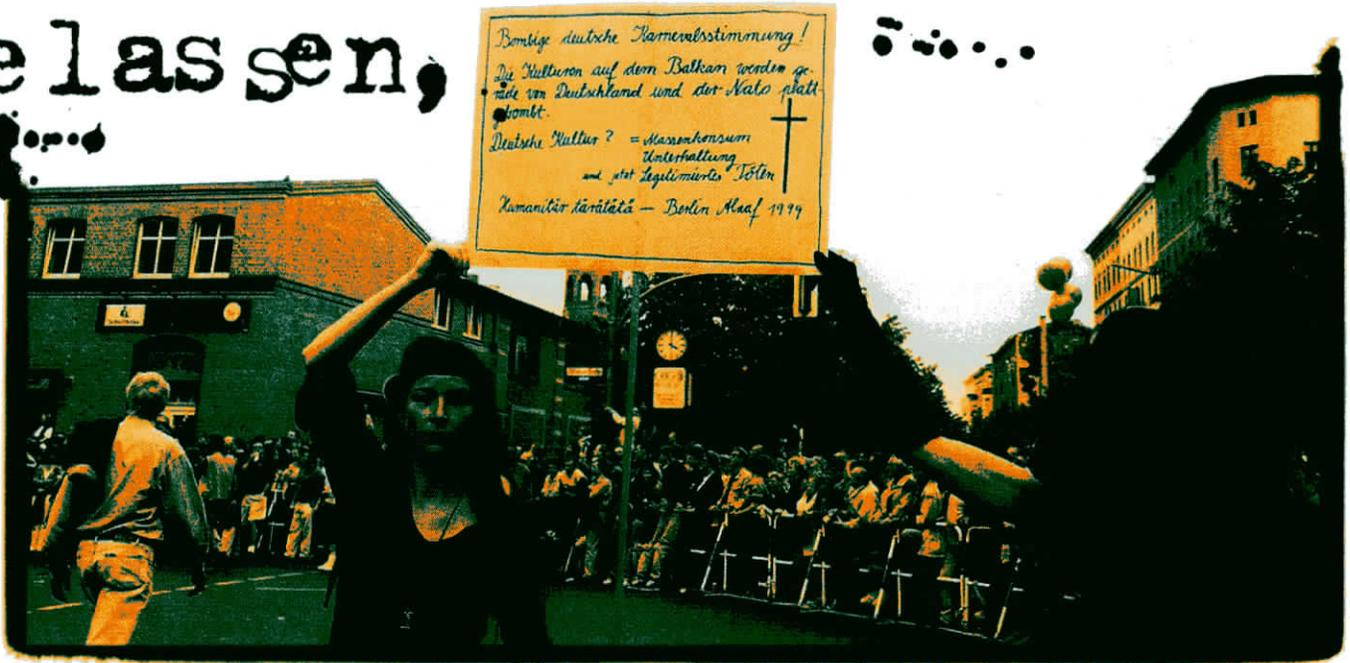 elassen,
Bombige deutsche Karnevalsstimmung!
Die Kulturen auf dem Balkan werden ge-
rade von Deutschland und der Nato platt-
gebombt.
Deutsche Kultur? = Massenkonsum
Unterhaltung
und jetzt Legitimiertes Töten
Humanitär tärätätä – Berlin Alaaf 1999